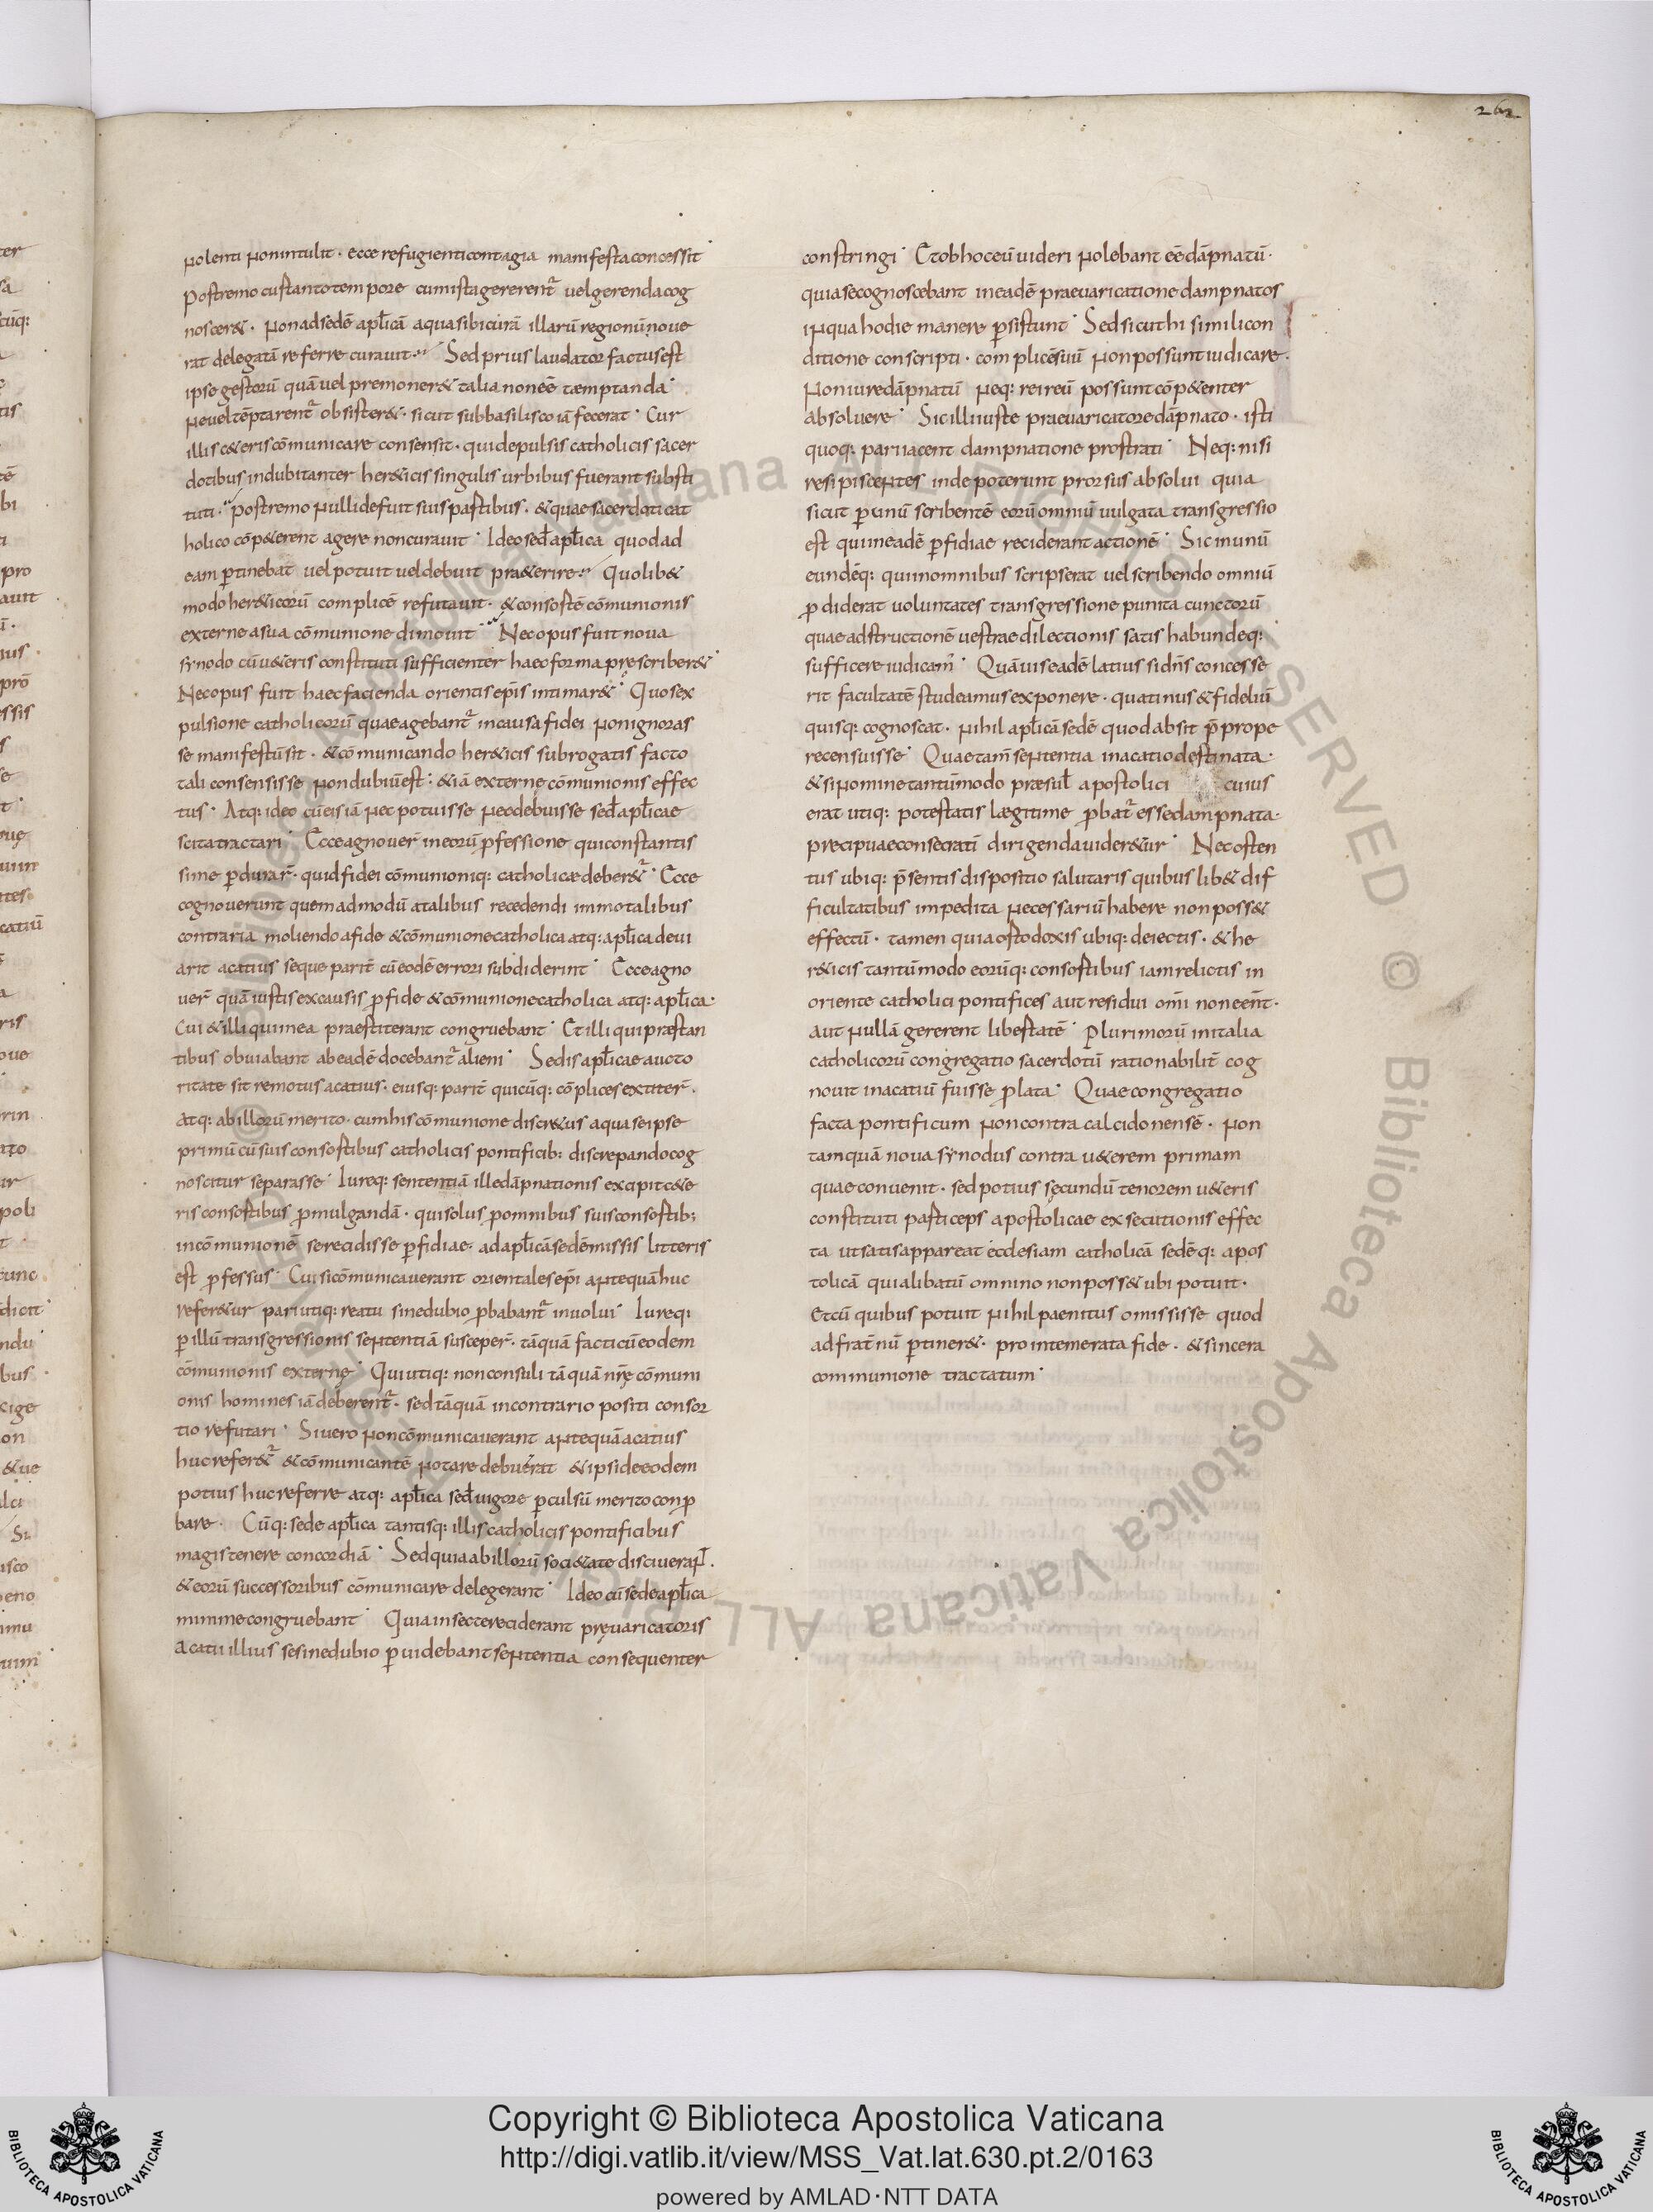 262
nolenti non intulit · ecce refugienti contagia manifesta concessit
Postremo cuftanto tempore cum ista gererent᷑ uel gerenda cog
nosceret · non ad sedē apl̄icā a qua sibi curā illarū regionū noue
rat delegatā referre curauit · Sed prius laudator factus est
ipse gestorū quā uel premoneret talia non eē temptanda ·
ne uel tēptarent᷑ obsisteret · sicut sub basilisco iā fecerat · Cur
illis ceteris cōmunicare consensit · qui depulsis catholicis sacer
dotibus indubitanter hereticis singulis urbibus fuerant substi
tuti · Postremo nulli defuit suis partibus · & quae sacerdoti cat
holico cōpeterent agere non curauit · Ideo sed̄ apl̄ica quod ad
eam ꝑtinebat uel potuit uel debuit praeterire · Quolibet
modo hereticorū complicē refutauit · & consortē cōmunionis
externe a sua cōmunione dimouit · Nec opus fuit noua
synodo cū ueteris constituti sufficienter haec forma pręscriberet ·
Nec opus fuit haec facienda orientis epīs intimaret · Quos ex
pulsione catholicorū quae agebant᷑ in causa fidei non ignoras
se manifestū sit · & cōmunicando hereticis subrogatis facto
tali consensisse non dubiū est · & iā externę cōmunionis effec
tus · Atq: ideo cū eis iā nec potuisse nec debuisse sed̄ apl̄icae
scita tractari · Ecce agnouer̄ in eorū ꝓfessione qui constantis
sime ꝑdurar̄ · quid fidei cōmunioniq: catholicae deberet᷑ · Ecce
cognouerunt quemadmodū a talibus recedendi immo talibus
contraria moliendo a fide & cōmunione catholica atq: apl̄ica deui
arit acatius seque parit̄ cū eodē errori subdiderint · Ecce agno
uer̄ quā iustis ex causis ꝓ fide & cōmunione catholica atq: apl̄ica ·
Cui & illi qui in ea praestiterant congruebant · Et illi qui praestan
tibus obuiabant ab eadē docebant᷑ alieni · Sedis apl̄icae aucto
ritate sit remotus acatius · eiusq: parit̄ quicūq: cōplices extiter̄ ·
Atq: ab illorū merito · cum his cōmunione discretus a qua se ipse
primū cū suis consortibus catholicis pontificib: discrepando cog
noscitur separasse · Iureq: sententiā ille dāpnationis excipit cete
ris consortibus ꝓmulgandā · qui solus ꝓ omnibus suis consortib;
in cōmunionē se recidisse ꝑfidiae · ad apl̄icā sedē missis litteris
est ꝓfessus · Cui si cōmunicauerant orientales epī antequā huc
referetur pari utiq: reatu sine dubio ꝓbabant᷑ inuolui · Iureq:
ꝑ illū transgressionis sententiā susceper̄ · tāquā facti cū eodem
cōmunionis externę · Qui utiq: non consuli tāquā nr̄ę cōmuni
onis homines iā deberent᷑ · sed tāquā in contrario positi consor
tio refutari · Si uero non cōmunicauerant antequā acatius
huc referet᷑ & cōmunicantē notare debuerāt & ipsi de eodem
potius huc referre atq: apl̄ica sed̄ uigore ꝑculsū merito conꝓ
bare · Cūq: sede apl̄ica tantisq: illis catholicis pontificibus
magis tenere concordiā · Sed quia ab illorū societate disciuer̄ant ·
& eorū successoribus cōmunicare delegerant · Ideo cū sede apl̄ica
minime congruebant · Quia in secte reciderant pręuaricatoris
Acatii illius se sine dubio ꝑuidebant sententia consequenter
constringi · Et ob hoc eū uideri nolebant eē dāpnatū ·
quia se cognoscebant in eadē praeuaricatione dampnatos
in qua hodie manere ꝑsistunt · Sed sicut hi simili con
ditione conscripti · complicē suū non possunt iudicare ·
Non iure dāpnatū neq: rei reū possunt cōpetenter
absoluere · Sic illi iuste praeuaricatore dāpnato · isti
quoq: pari iacent dampnatione prostrati · Neq: nisi
resipiscentes inde poterunt prorsus absolui quia
sicut ꝑ unū scribentē eorū omniū uulgata transgressio
est qui in eadē ꝑfidiae reciderant actionē · Sic in unū
eundēq: qui in omnibus scripserat uel scribendo omniū
ꝓdiderat uoluntates transgressione punita cunctorū
quae ad structionē uestrae dilectionis satis habundeq: ·
sufficere iudicam̄ · Quāuis eadē latius si dn̄s concesse
rit facultatē studeamus exponere · quatinus & fideliū
quisq: cognoscat · nihil apl̄icā sedē quod absit p̄prope
re censuisse · Quae tam̄ sententia in acatio destinata ·
& si nomine tantūmodo praesul̄ apostolici cuius
erat utiq: potestatis laegitime ꝓbat᷑ esse dampnata ·
precipuae consecrati dirigenda uideretur · Nec osten
tus ubiq: p̄sentis dispositio salutaris quibus libet dif
ficultatibus impedita necessariū habere non posset
effectū · tamen quia ortodoxis ubiq: deiectis · & he
reticis tantūmodo eorūq: consortibus iam relictis in
oriente catholici pontifices aut residui om̄i non eēnt ·
aut nullā gererent libertatē · Plurimorū in italia
catholicorū congregatio sacerdotū rationabilit̄ cog
nouit in acatiū fuisse ꝓlata · Quae congregatio
facta pontificum non contra calcidonensē · non
tamquā noua synodus contra ueterem primam
quae conuenit · sed potius secundū tenorem ueteris
constituti particeps apostolicae exsecutionis effec
ta ut satis appareat ecclesiam catholicā sedēq: apos
tolicā qui alibatū omnino non posset ubi potuit ·
Et cū quibus potuit nihil paenitus omississe quod
ad frat̄nū ꝑtineret · pro intemerata fide · & sincera
communione tractatum ·
Copyright © Biblioteca Apostolica Vaticana
http://digi.vatlib.it/view/MSS_Vat.lat.630.pt.2/0163
powered by AMLAD·NTT DATA
BIBLIOTECA APOSTOLICA VATICANA
BIBLIOTECA APOSTOLICA VATICANA